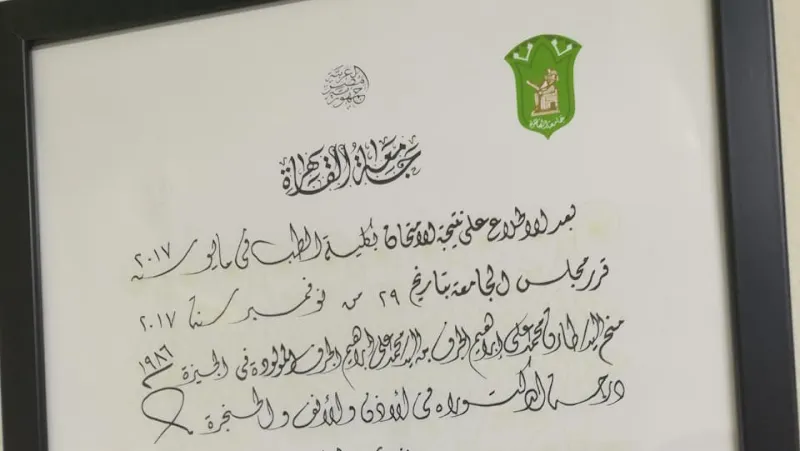 جمهورية مصر العربية
جامعة القاهرة
جامعة القاهرة
بعد الاطلاع على نتيجة الامتحان بكلية الطب فى مايو سنة ٢٠١٧
قرر مجلس الجامعة بتاريخ ٢٩ من نوفمبر سنة ٢٠١٧
منح محمد على إبراهيم محمد على إبراهيم المولودة فى الجيزة ١٩٨٦
درجة الدكتوراه فى الأذن والأنف والحنجرة